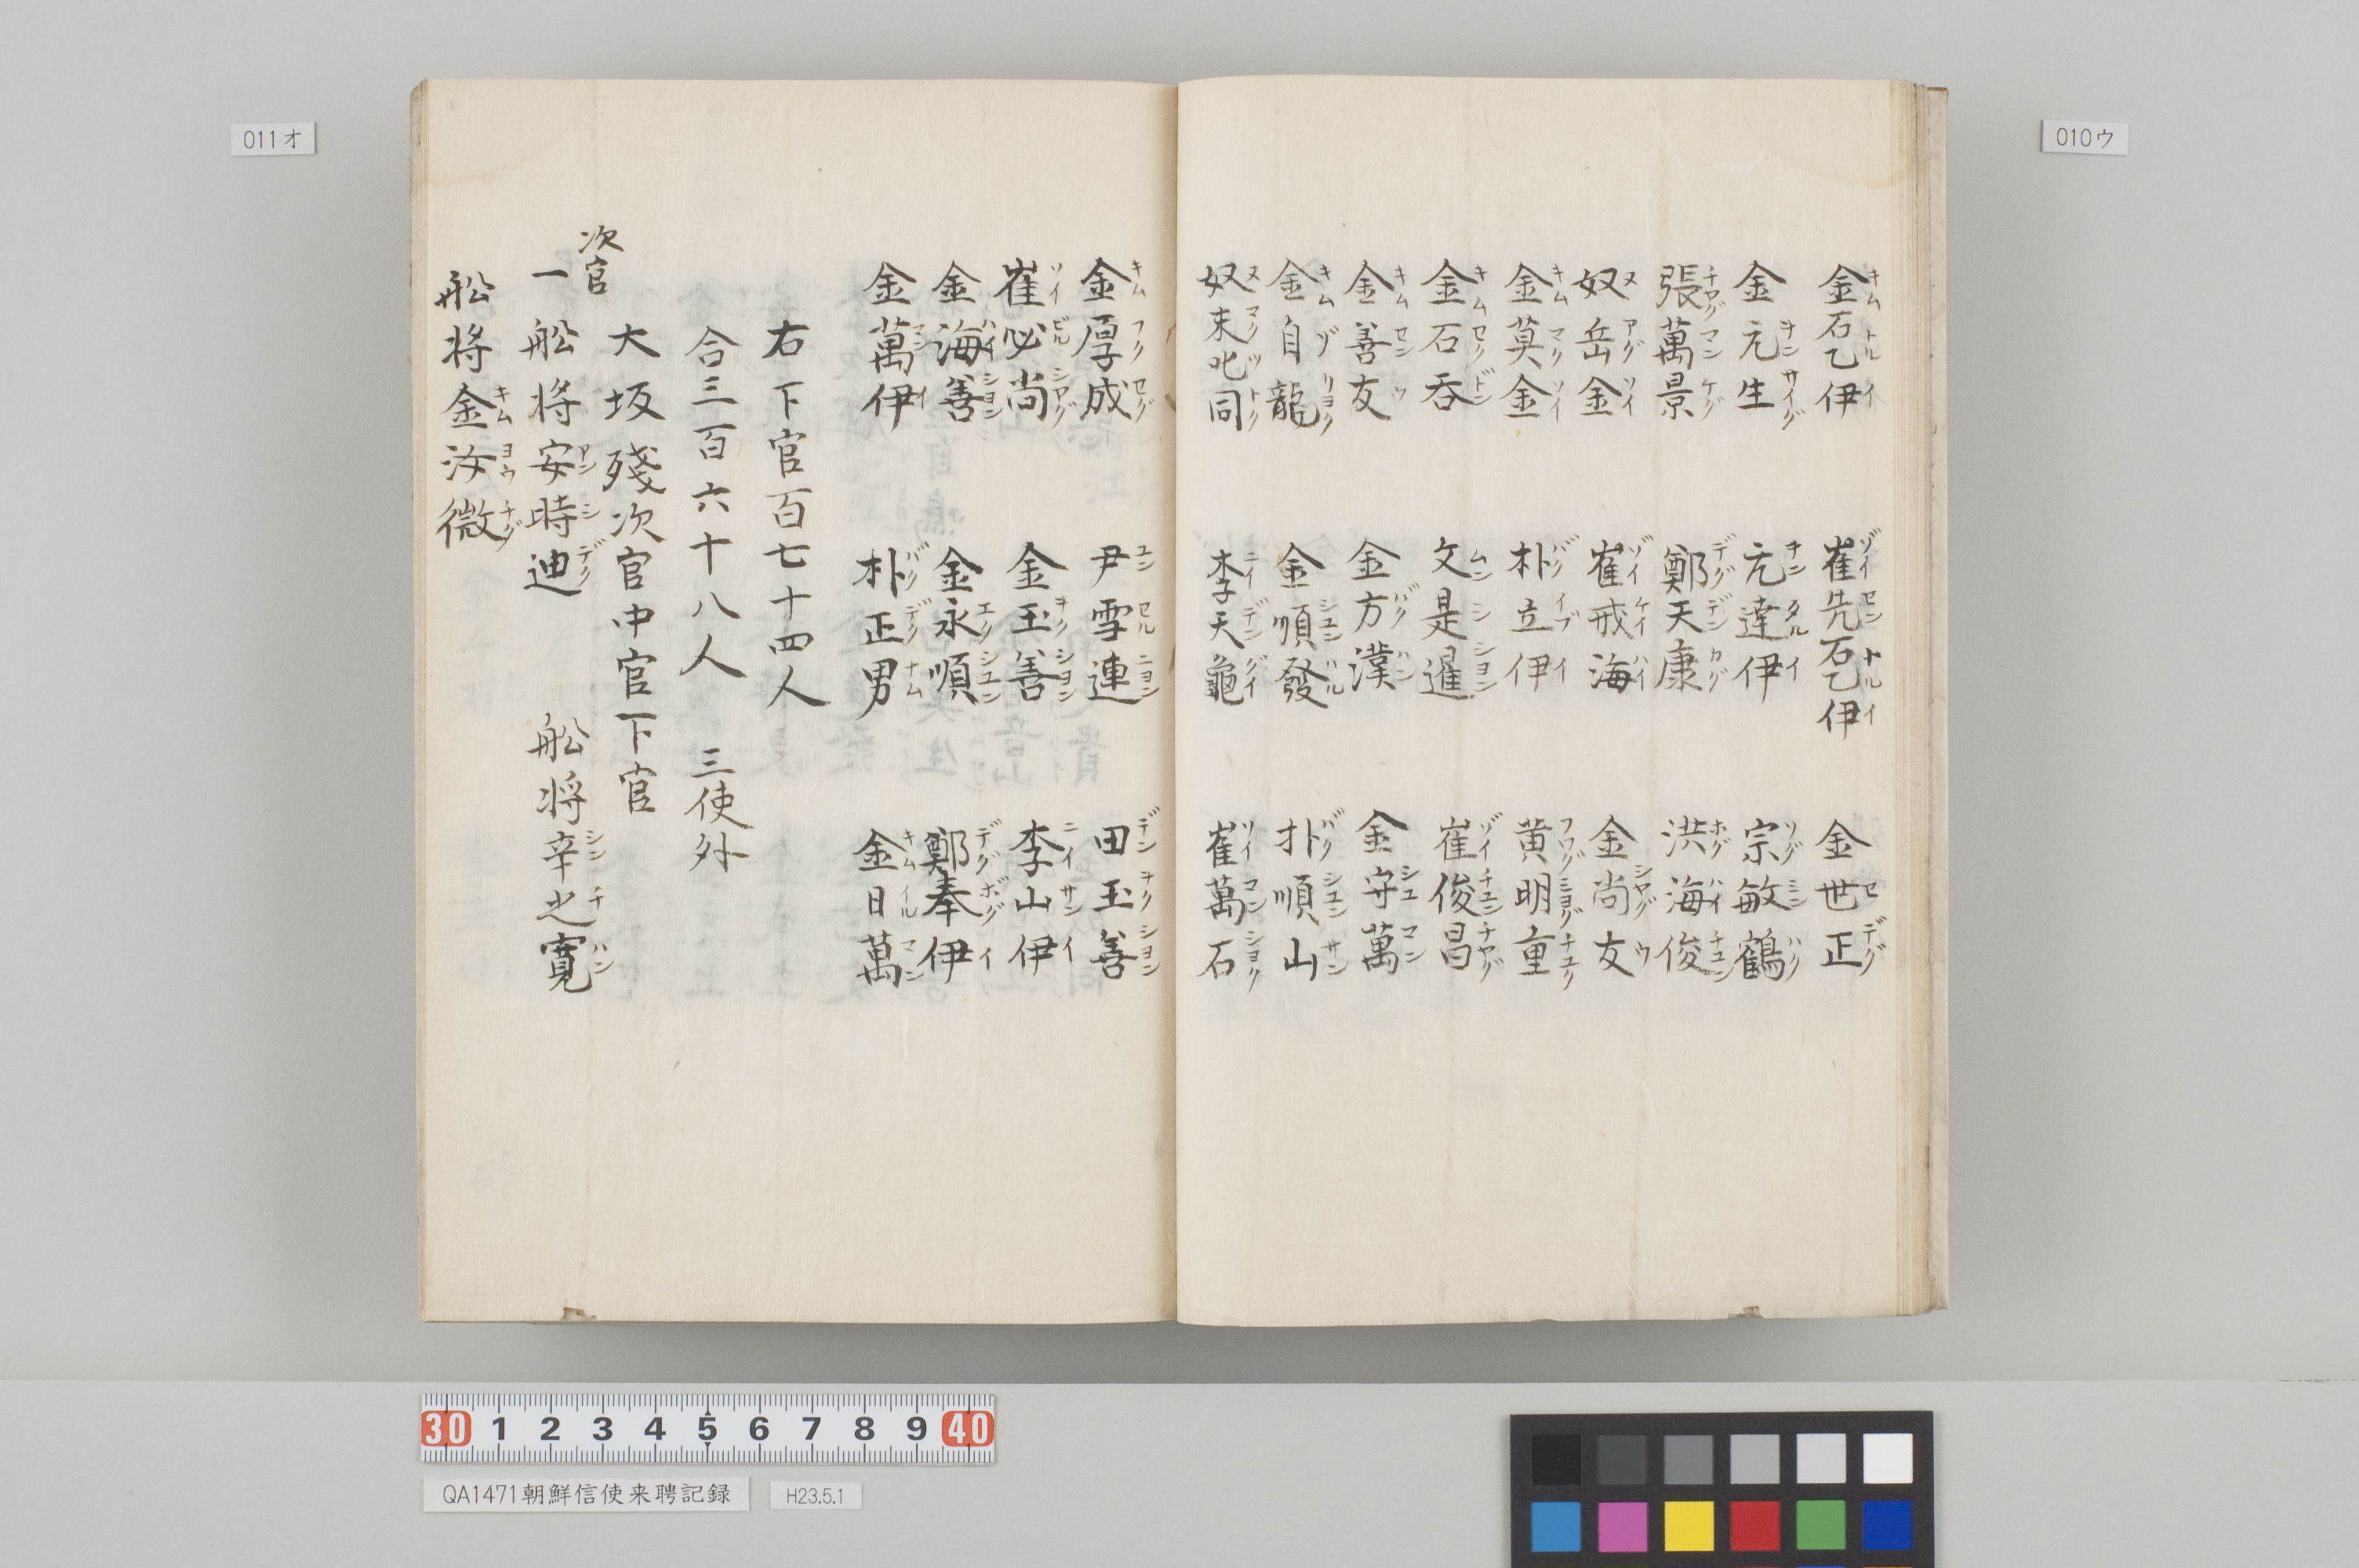 金石乙伊 崔先石乙伊 金世正
金元生 元達伊 宗敏鶴
張萬景 鄭天康 洪海俊
奴岳金 崔戒海 金尚友
金莫金 朴立伊 黄明重
金石呑 文是暹 崔俊昌
金善友 金方漢 金守萬
金自龍 金順發 朴順山
奴末叱同 李天龜 崔萬石
金厚成 尹雪連 田玉善
崔必尚 金玉善 李山伊
金海善 金永順 鄭奉伊
金萬伊 朴正男 金日萬
右下官百七十四人
合三百六十八人 三使外
大坂殘次官中官下官
次官
一 舩将安時迪 舩将辛之寛
舩将金汝微
010ウ
011オ
30 1 2 3 4 5 6 7 8 9 40
QA1471朝鮮信使来聘記録
H23.5.1